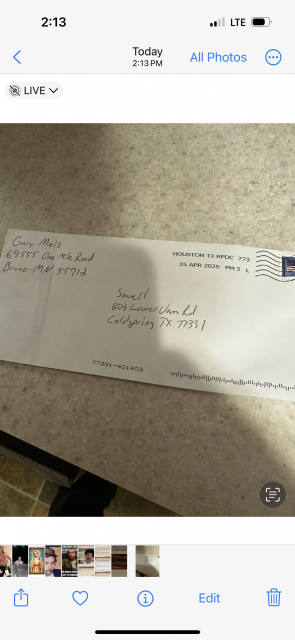 2:13
LTE
Today
2:13 PM
All Photos
LIVE
Gary Meis
69555 One Mile Road
Bruno MN 55712
HOUSTON TX RPDC 773
15 APR 2025 PM 3 L
Savell
803 Lower Vann Rd
Coldspring TX 77331
77331-401403
Edit